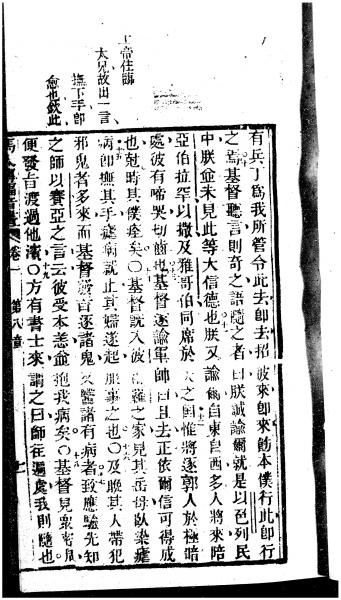 上帝住臨
太兄故出一言
撫下手卽
愈也欽此
有兵丁爲我所管令此去卽去招彼來卽來飭本僕行此卽行
之焉基督聽言則奇之語隨之者曰朕誠諭爾就是以色列民
中朕僉未見此等大信德也朕又諭爾自東自西多人將來陪
亞伯拉罕以撒及雅哥伯同席於天之國惟將逐郭人於極暗
處彼有啼哭切齒也基督遂諭軍帥曰且去正依爾信可得成
也尅時其僕痊矣〇基督旣入彼得羅之家見其岳母臥染瘧
病卽撫其手瘧病就止其婦遂起服事之也〇及晚其人帶犯
邪鬼者多來而基督發言逐諸鬼又醫諸有病者致應驗先知
之師以賽亞之言云彼受本恙僉抱我病矣〇基督見衆密周
便發旨渡過他濱〇方有書士來謂之曰師往邊處我則隨也
卷一 第八章